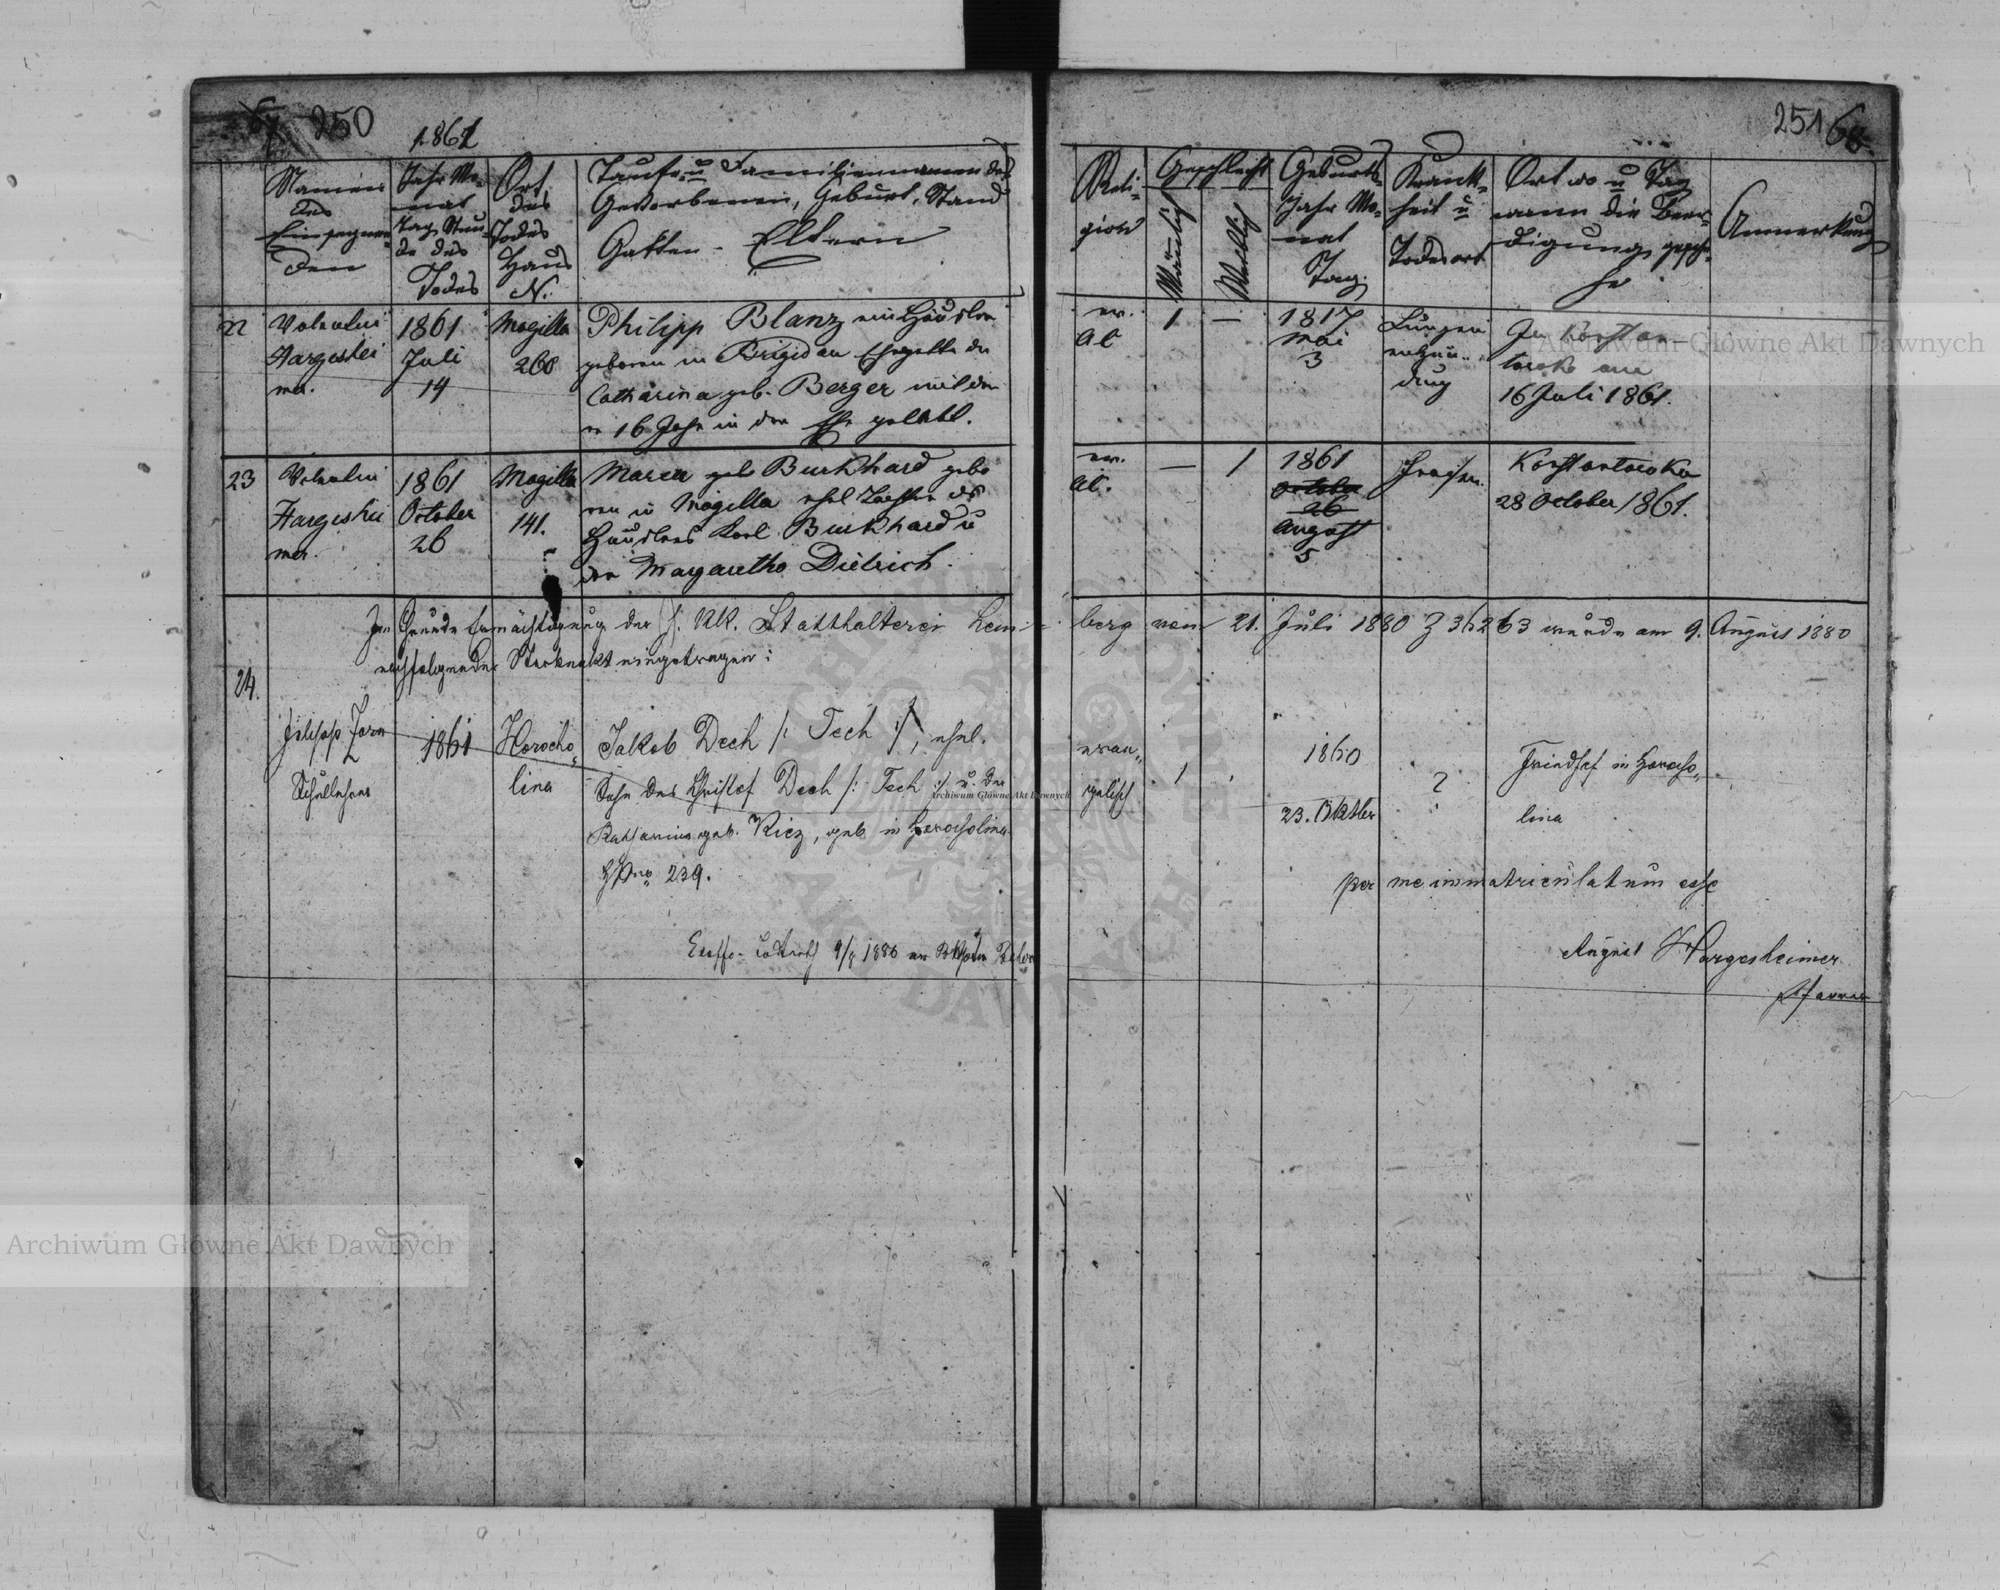 250
1861
251
Namen
des
Einsegnen-
den
Jahr Mo-
nat
Tag Stun-
de des
Todes
Ort
des
Todes
Haus
N.
Taufe u Familiennamen des
Gestorbenen, Geburt, Stand
Gatten - Eltern
Reli-
gion
Geschlecht
Männlich
Weiblich
Geburts-
Jahr Mo-
nat
Tag.
Krank-
heit u
Todesart
Ort wo u Tag
wann die Beer-
digung gesche-
he
Anmerkung
22
Valentin
Hargeshei
mer.
1861
Juli
14
Mogilla
260
Philipp Blanz ein Häusler
geboren in Brigidau Ehegatte der
Catharina geb. Berger mit der
er 16 Jahr in der Ehe gelebt.
ev.
AC
1
—
1817
Mai
3
Lungen
entzün-
dung
In Konstan-
towka am
16 Juli 1861.
23
Valentin
Hargeshei
mer.
1861
October
26
Mogilla
141.
Maria geb Burkhard gebo
ren in Mogilla ehel Tochter des
Häuslers Karl Burkhard u
der Margaretha Dietrich.
ev.
AC.
—
1
1861
October
26
August
5
Fraisen.
Konstantowka
28 October 1861.
Im Grunde Ermächtigung der h. k.k. Statthalterei Lem-
berg vom 21. Juli 1880 Z 36263 wurde am 9. August 1880
nachfolgender Sterbeakt eingetragen:
24.
Filipp Zorn
Schullehrer
1861
Horocho
lina
Jakob Dech /: Tech :/, ehel.
Sohn des Christof Dech /: Tech :/ u. der
Katharina geb. Kicz, geb. in Horocholina
HsNo 239.
evan-
gelisch
1
1860
23. Oktber
?
Friedhof in Horocho-
lina
per me immatriculatum esse
9/8 1880
August Hargesheimer
Pfarrer
Archiwum Główne Akt Dawnych
Archiwum Główne Akt Dawnych
Archiwum Główne Akt Dawnych